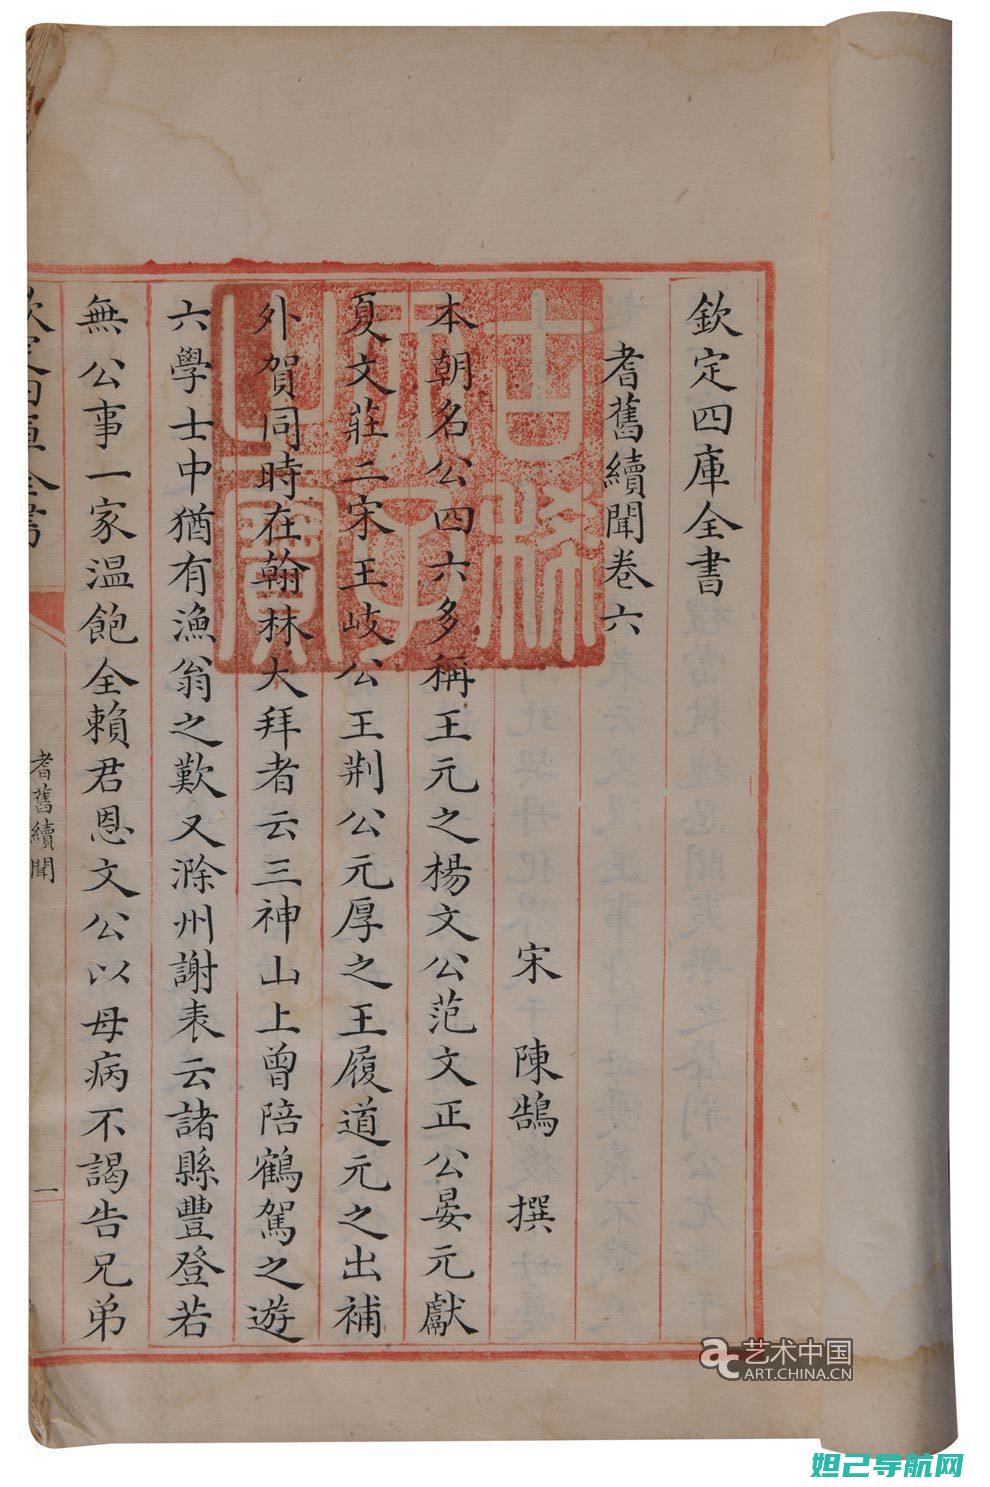 欽定四庫全書
耆舊續聞卷六
宋 陳鵠 撰
本朝名公四六多稱王元之楊文公范文正公晏元獻
夏文莊二宋王岐公王荆公元厚之王履道元之出補
外賀同時在翰林大拜者云三神山上曾陪鶴駕之遊
六學士中猶有漁翁之歎又滁州謝表云諸縣豐登若
無公事一家温飽全賴君恩文公以母病不謁告兄弟
欽定四庫全書
耆舊續聞
一
古稀天子之寶
艺术中国
ART.CHINA.CN
妲己导航网